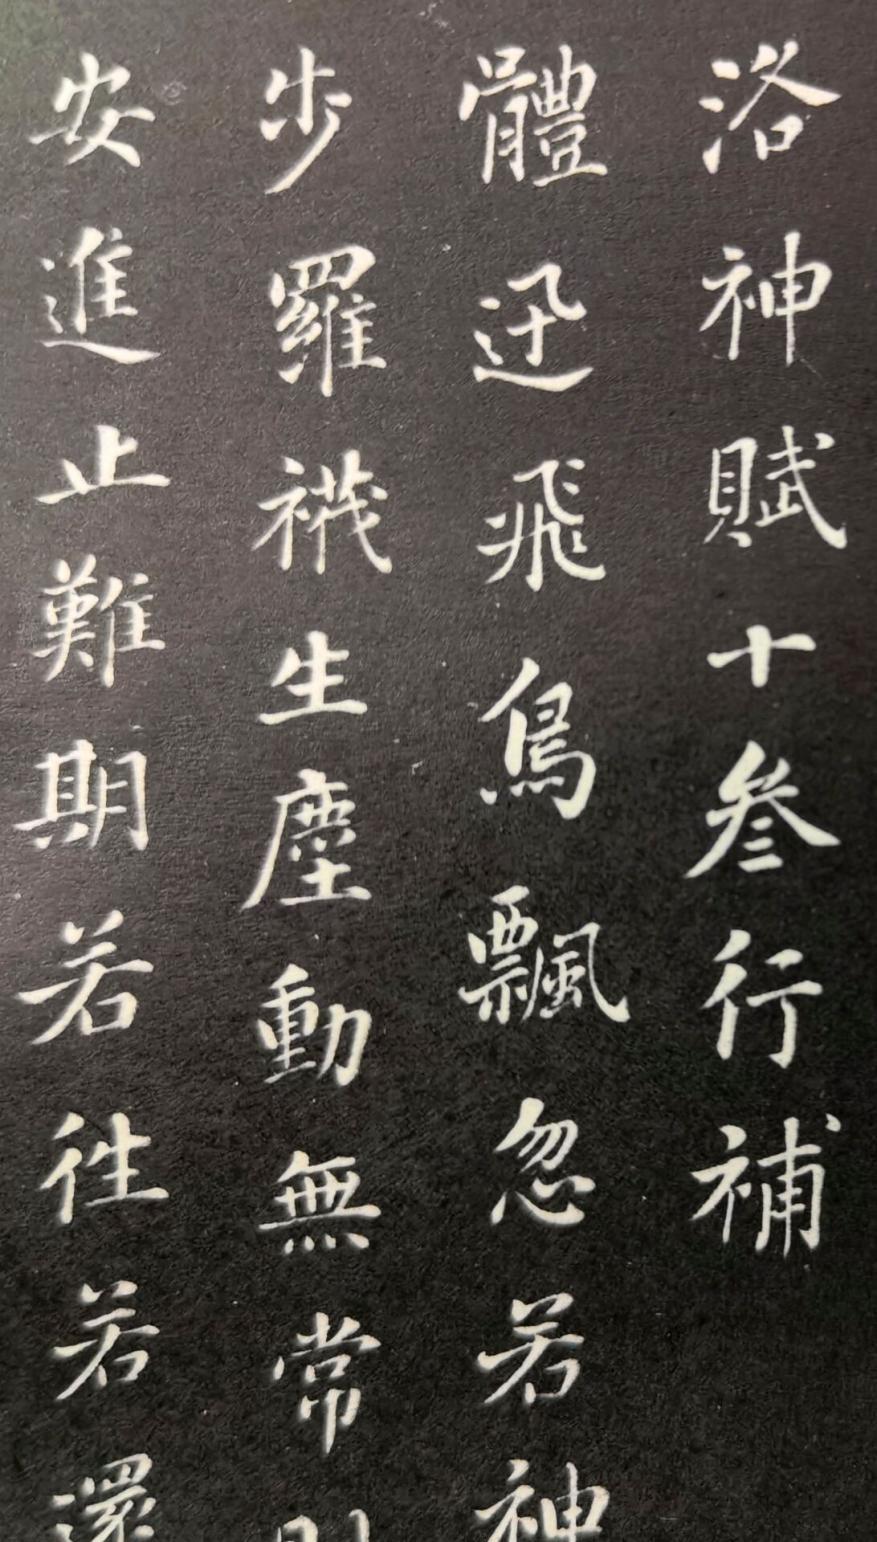 洛神賦十叄行補
體迅飛鳬飄忽若神
步羅襪生塵動無常
安進止難期若往若還